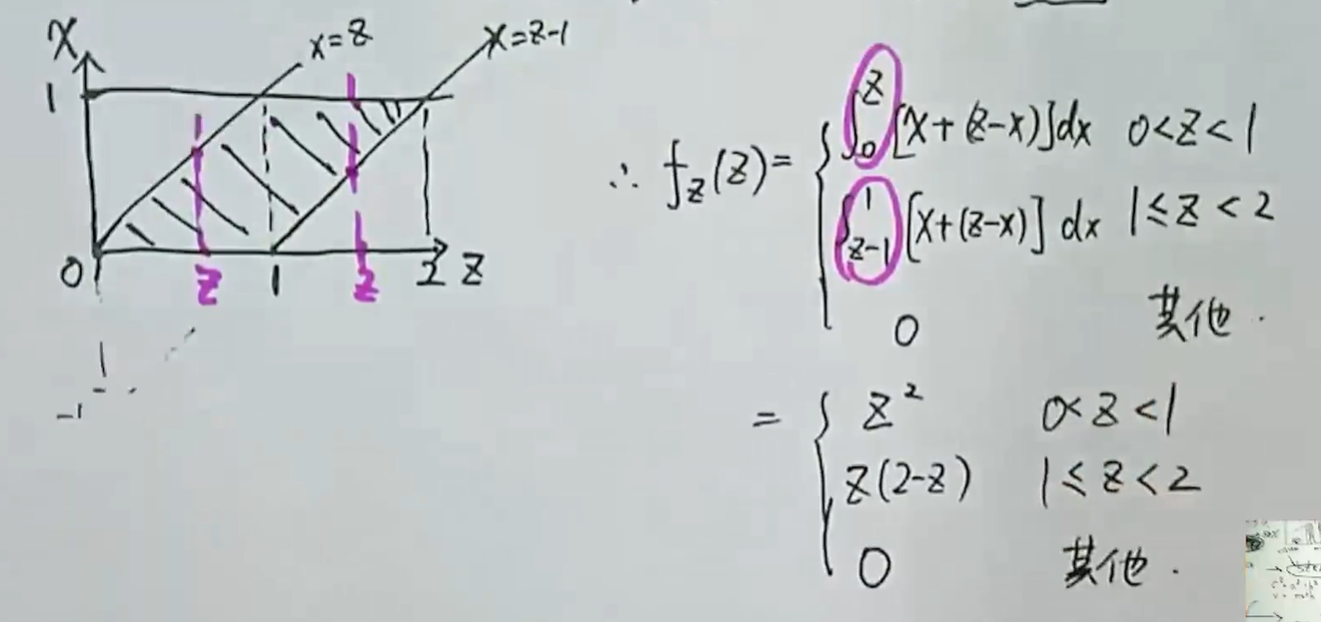 X
x=z
x=z-1
1
0
z
1
z
2
z
-1
∴ f_Z(z)= { ∫_0^z [x+(z-x)]dx 0<z<1
∫_{z-1}^1 [x+(z-x)] dx 1≤z<2
0 其他.
= { z² 0<z<1
z(2-z) 1≤z<2
0 其他.